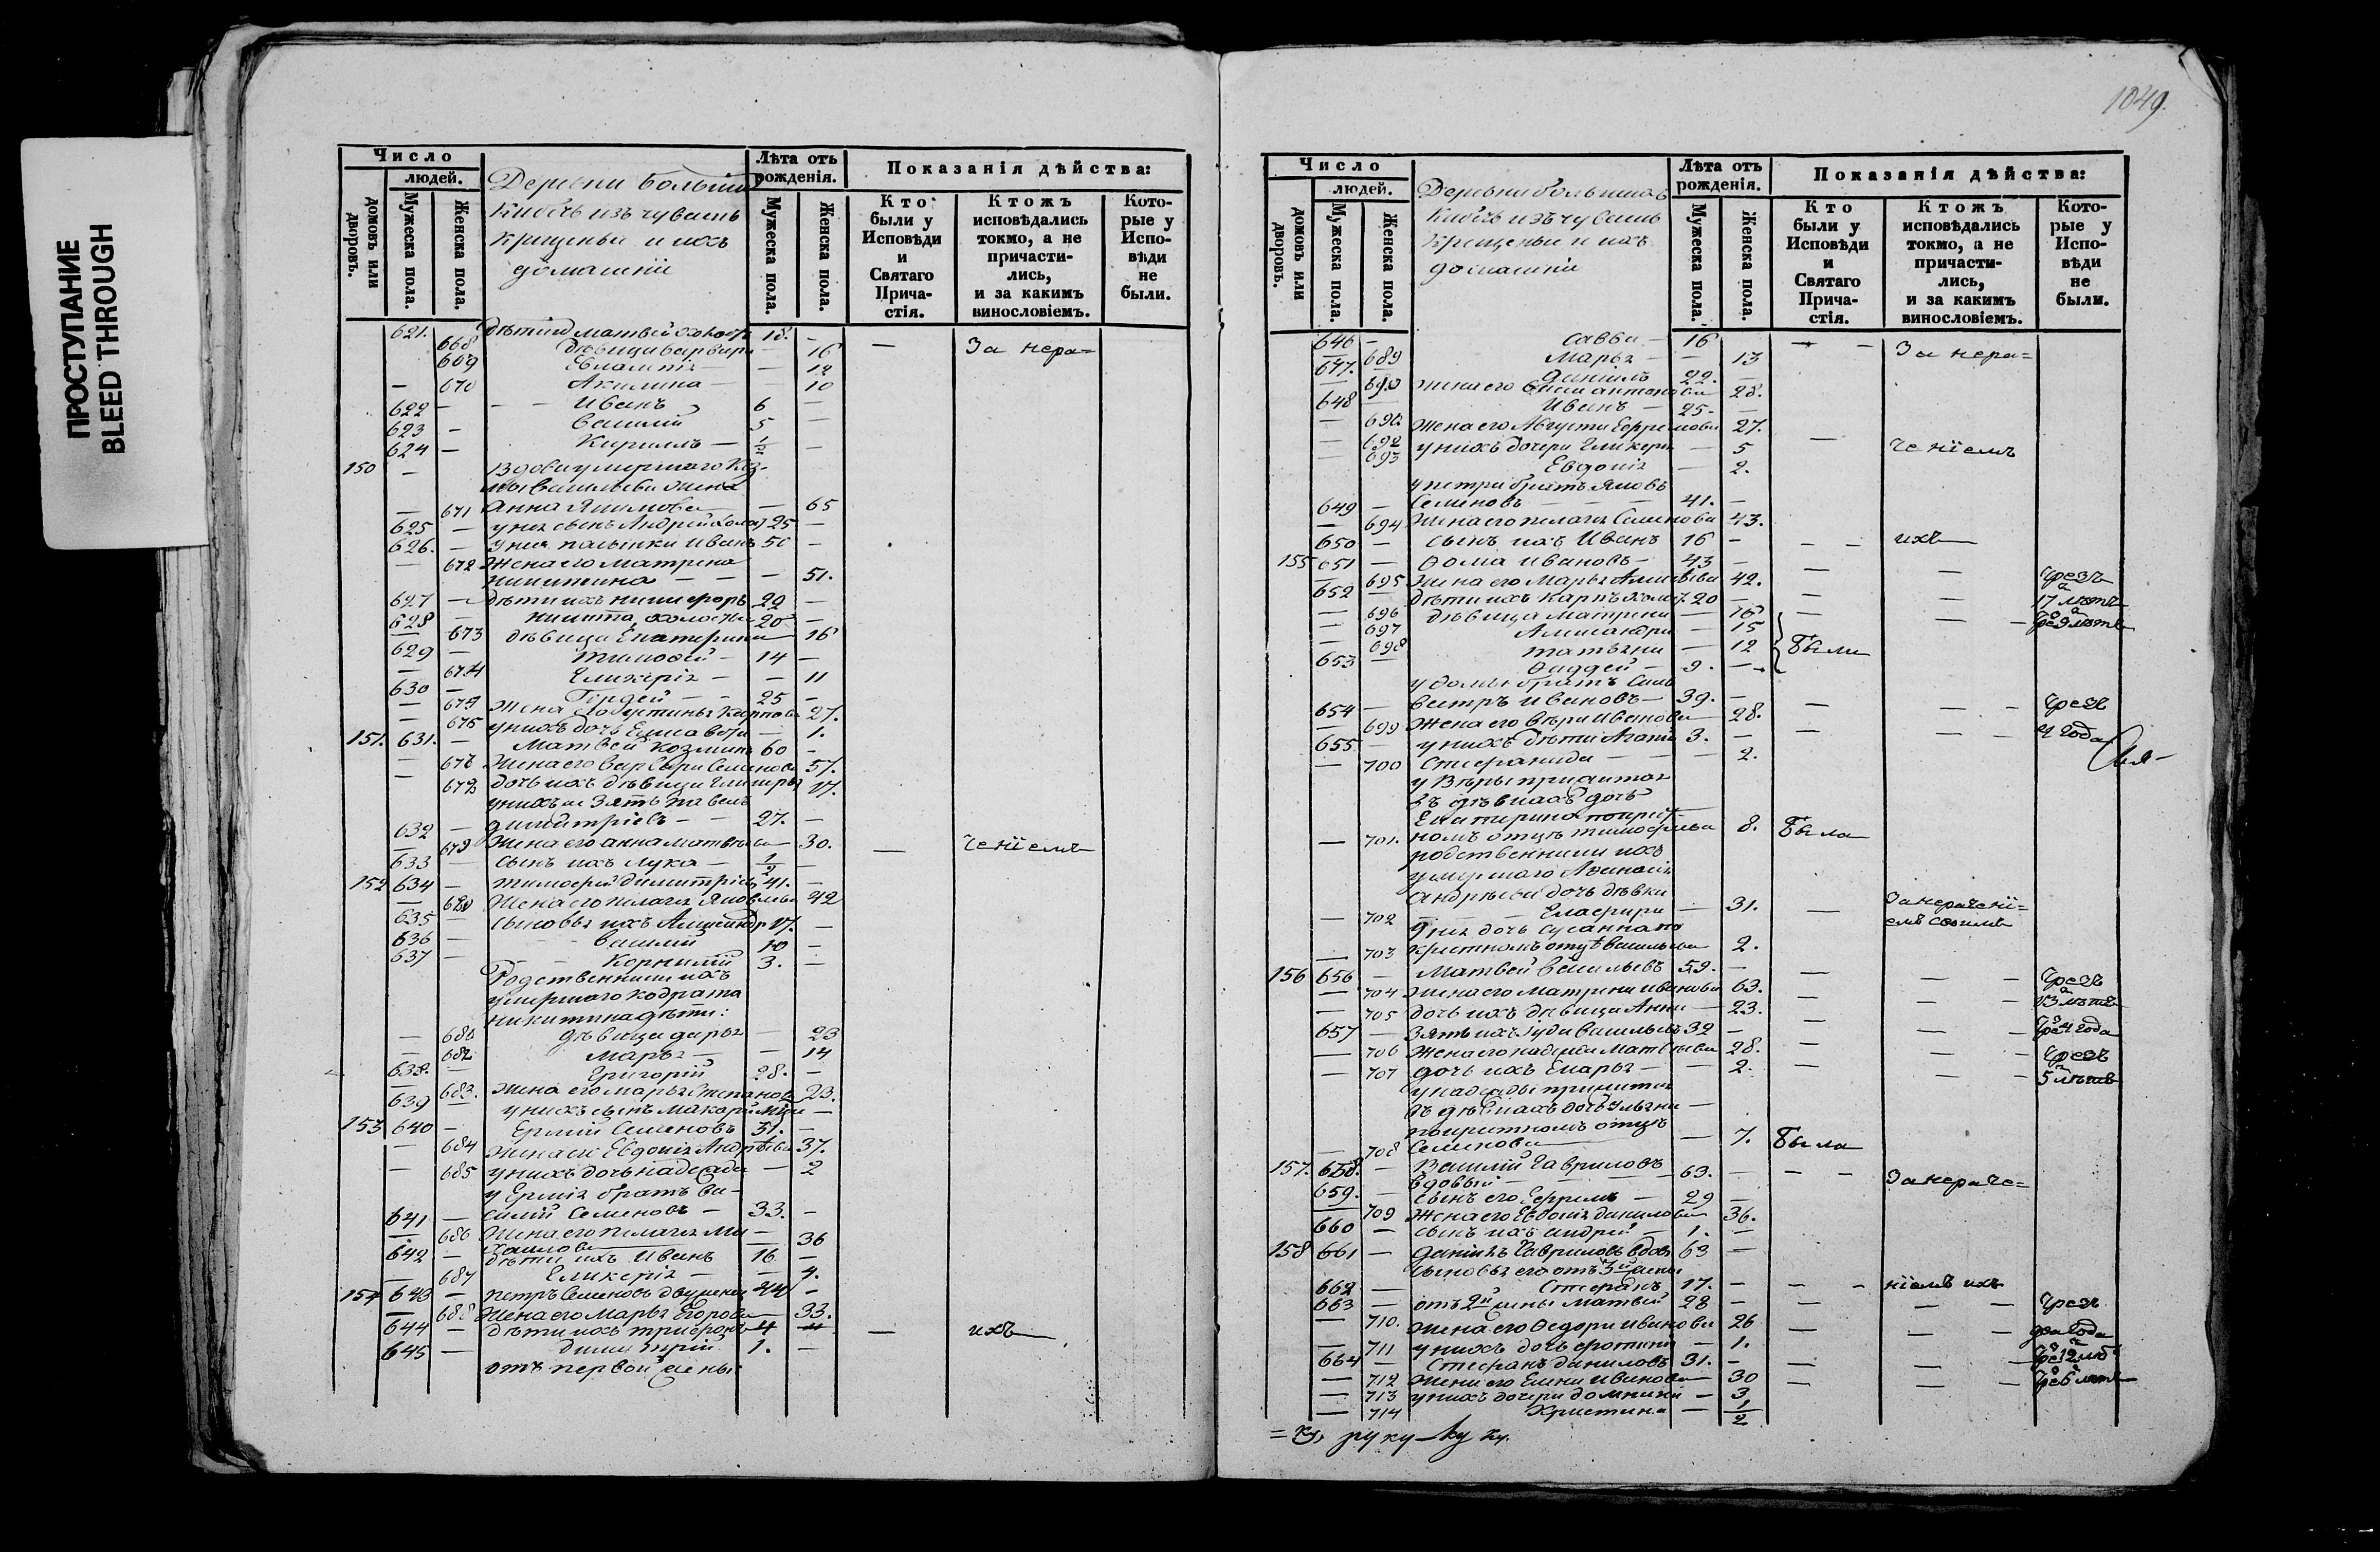 ПРОСТУПАНИЕ
BLEED THROUGH
1049.
Число
людей.
домовъ или дворовъ.
Мужеска пола.
Женска пола.
Деревни Большихъ
изъ чувашъ
крещеныи и ихъ
домашніи
Лѣта отъ рожденія.
Мужеска пола.
Женска пола.
Показанія дѣйства:
Кто были у Исповѣди и Святаго Причастія.
Ктожъ исповѣдались токмо, а не причастились, и за какимъ винословіемъ.
Которые у Исповѣди не были.
621. Матвей холостъ 18. —
668 дѣвица варвара — 16 — За нера=
669 Евлампія — 12
— 670 Акилина — 10
622 — Иванъ 6 —
623 — Василій 5 —
624 — Кириллъ — 1/2 —
150 — Вдова умершаго Коз-
мы Васильева жена
— 671 Анна — 65
625 — у нея сынъ Андрей холос 25 —
626. — у нея Иванъ 50 —
— 672 Жена его Матрена
— — — 51.
627 — дѣти ихъ Никифоръ 22 —
628 — Никита холостъ 20 —
— 673 дѣвица Екатерина 16
629 — Тимофей — 14 —
— 674 Гликерія — — 11
630 — Гордей — 25 —
— Жена Августина Карпова 27.
— у нихъ дочь Елисавета — 1.
151. 631. — Матвей Козминъ 60 —
— Жена его Варвара Семенова 57.
— дочь ихъ дѣвица Гликерья 17.
у нихъ зять Павелъ
632 — Димитріевъ — — 27. —
— 679 Жена его Анна Матвѣева — 30. — ченіемъ
633 — сынъ ихъ Лука — 1/2 —
152 634 — Тимофей Димитріевъ 41. —
— 680 Жена его Пелагея Яковлева 42
635 — сыновья ихъ Александръ 17. —
636 — Василій 10 —
637 — Корнилій 3. —
Родственники ихъ
умершаго Кодрата
Никитина дѣти:
— 681 дѣвица Дарья — 23
— 682 Марья — — 14
638. — Григорій 28. —
— 683. Жена его Марья Степанова 23.
639 — у нихъ сынъ Макарій —
153 640 — Ермій Семеновъ 31. —
— 684 Жена его Евдокія Андрѣева 37.
— 685 у нихъ дочь Надежда — 2
у Ермія братъ Ва-
641 — силій Семеновъ — 33. —
— 686 Жена его Пелагея Ми-
хайлова — 36
642 — дѣти ихъ Иванъ 16 —
— 687 Гликерія — — 4.
154 643 — Петръ Семеновъ 44 —
— 688 Жена его Марья Егорова — 33.
644 — дѣти ихъ Трифонъ 4 — ихъ
645 — Димитрій 1. —
отъ первой жены
Число
людей.
домовъ или дворовъ.
Мужеска пола.
Женска пола.
Деревни Большихъ
изъ чувашъ
крещеныи и ихъ
домашніи
Лѣта отъ рожденія.
Мужеска пола.
Женска пола.
Показанія дѣйства:
Кто были у Исповѣди и Святаго Причастія.
Ктожъ исповѣдались токмо, а не причастились, и за какимъ винословіемъ.
Которые у Исповѣди не были.
646 — Савва — 16 — — За нера=
— 689 Марья — — 13
647. — Даніилъ 22. —
— 690 Жена его Антонова 28.
648 — Иванъ — 25 —
— Жена его Августа Ефремова 27.
— 692 у нихъ дочери Гликерія — 5 — ченіемъ
— 693 Евдокія — 2.
у Петра братъ Яковъ
649 — Семеновъ — 41. —
— 694 Жена его Пелагея Семенова 43.
650 — сынъ ихъ Иванъ 16 — — — ихъ
155 651 — Ѳома Ивановъ — 43 —
— 695 Жена его Марья Алексѣева 42. — — чрезъ
652 — дѣти ихъ Карпъ холос. 20 — — — 17 лѣтъ
— 696 дѣвица Матрена — 16 — — —
— 697 Александра — 15
— 698 Татьяна — 12 Были
653 — Фаддей — 9. —
у Ѳомы братъ Силь-
654 — вестръ Ивановъ — 39. — — — чрезъ
— 699 Жена его Вѣра Иванова 28. — — 4 года
655 — у нихъ дѣти 3. —
— 700 Степанида — — 2.
у Вѣры прижитая
въ дѣвкахъ дочь
Екатерина по крест-
— 701. номъ отцѣ Тимофѣева 8. Была
родственники ихъ
умершаго
Андрѣева дочь дѣвка
— 702 — Глафира — 31. — За нерачені=
у нея дочь Сусанна по емъ своимъ
— 703 крестномъ отцѣ Васильева 2.
156 656 — Матвей Васильевъ 59. — — — чрезъ
— 704 Жена его Матрена Иванова 63. — — 13 лѣтъ
— 705 дочь ихъ дѣвица Анна — 23. — — 4 года
657 — зять ихъ Васильевъ 32 —
— 706 Жена его Надежда Матвѣева 28. — — чрезъ
— 707 дочь ихъ Марья — — 2. — 5 лѣтъ
у Надежды прижитая
въ дѣвкахъ дочь Ульяна —
по крестномъ отцѣ
— 708 Семенова — — 7. Была
157. 658. — Василій Гавриловъ
вдовый — 63. — — — За нераче=
659. — сынъ его Ефремъ — 29 —
— 709 Жена его Евдокія Данилова 36.
660 — сынъ ихъ Андрей — 1. —
158 661 — Данилъ Гавриловъ вдов 63 —
Сыновья его отъ 3й жены
662 — Стефанъ 17. — — — ніемъ ихъ
663 — отъ 2й жены Матвей 28 — — — чрезъ
— 710. Жена его Ѳедора Иванова 26 — — два года
— 711 у нихъ дочь — 1.
664 — Стефанъ Даниловъ 31. — — —
— 712 Жена его Елена Иванова 30 — —
— 713 у нихъ дочери Домникія — 3
— 714 Христина — 1/2
руку